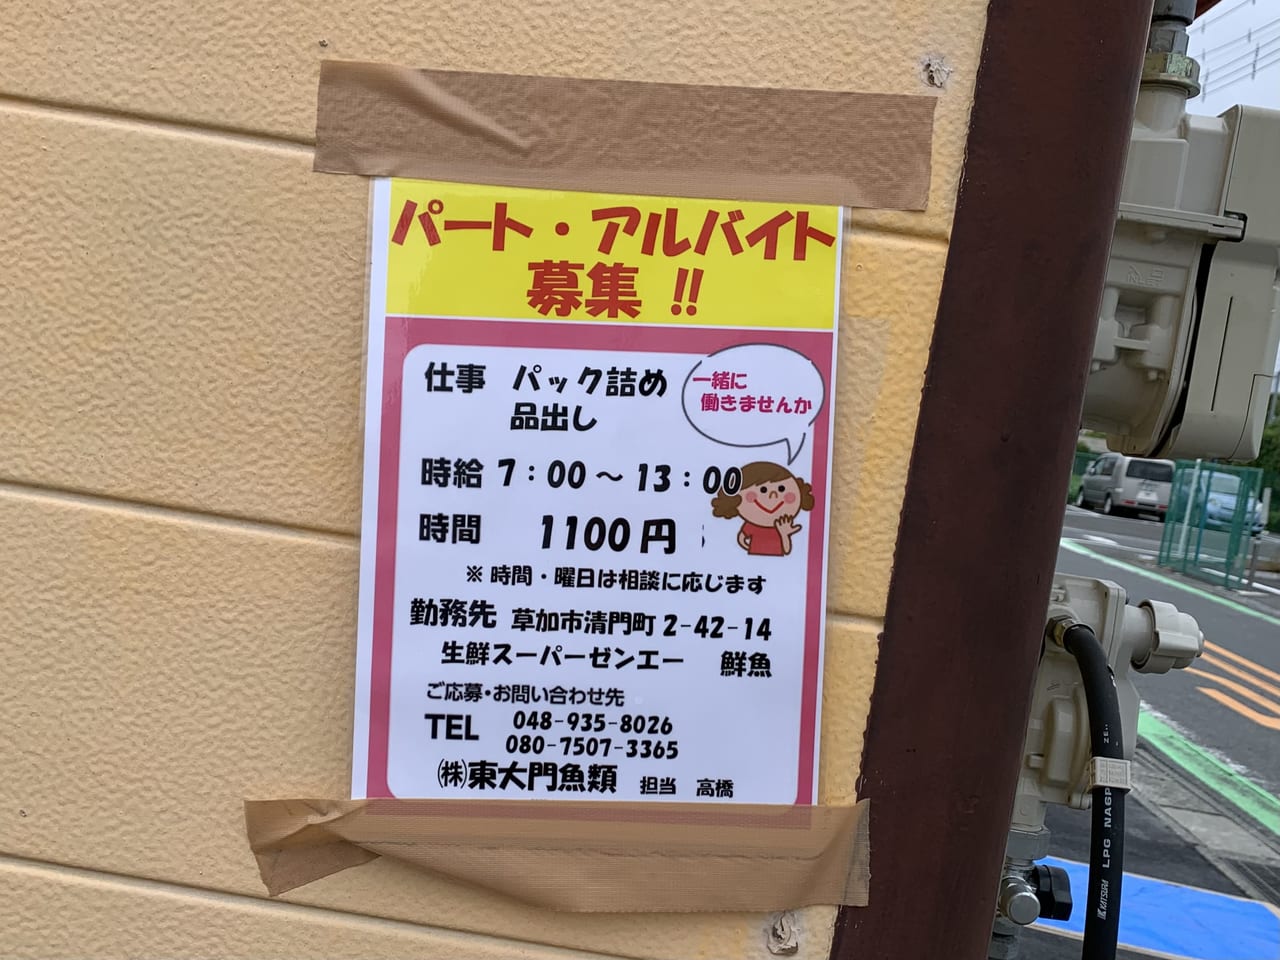 パート・アルバイト
募集 !!
仕事 パック詰め
品出し
一緒に
働きませんか
時給 7:00～13:00
時間 1100円
※時間・曜日は相談に応じます
勤務先 草加市清門町2-42-14
生鮮スーパーゼンエー 鮮魚
ご応募・お問い合わせ先
TEL 048-935-8026
080-7507-3365
㈱東大門魚類 担当 高橋
LPG NAGP
KATSURA